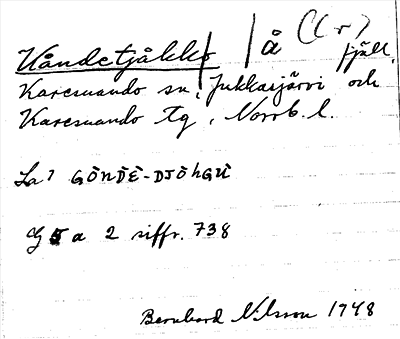 Kåndetjåkko | å ((r)
fjäll,
Karesuando sn, Jukkasjärvi och
Karesuando tg, Norrb. l.
La? GÒNDĖ-DJÒhGU
G 5 a 2 siffr. 738
Bernhard Nilsson 1948